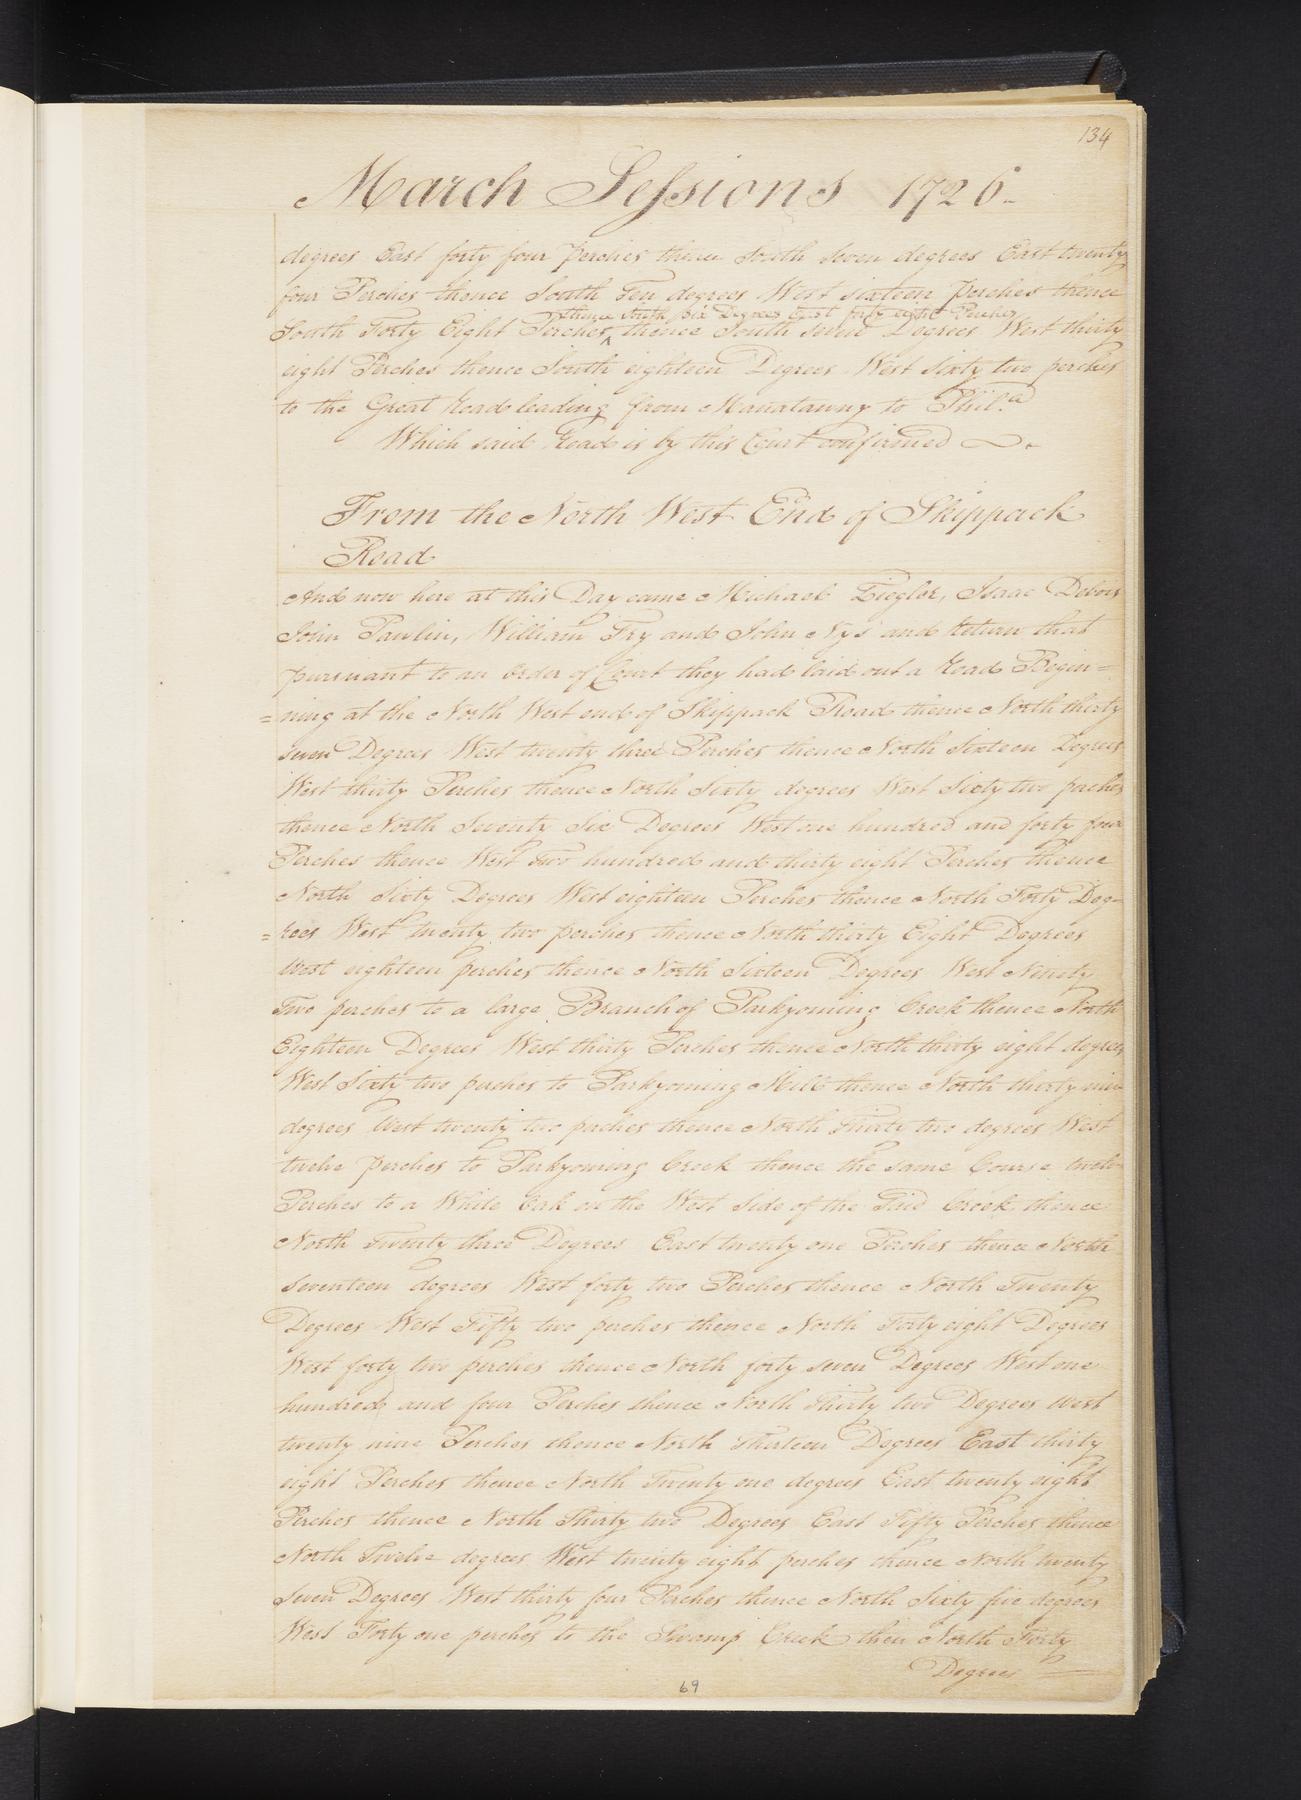 134
March Sessions 1726
degrees East forty four Perches thence South Seven degrees East twenty
four Perches thence South Ten degrees West sixteen perches thence
thence South six Degrees East forty eight Perches
South Forty Eight Perches ^ thence South seven Degrees West thirty
eight Perches thence South eighteen Degrees West sixty two perches
to the Great Road leading from Manatawny to Phil.a
Which said Road is by this Court confirmed
From the North West End of Skippack
Road
And now here at this Day came Michael Ziegler, Isaac Debois
John Pawlin, William Fry and John Nys and Return that
pursuant to an Order of Court they had laid out a Road Begin=
=ning at the North West end of Skippack Road thence North thirty
seven Degrees West twenty three Perches thence North Sixteen Degrees
West thirty Perches thence North Sixty degrees West Sixty two perches
thence North Seventy Six Degrees West one hundred and forty four
Perches thence West Two hundred and thirty eight Perches thence
North Sixty Degrees West eighteen Perches thence North Forty Deg=
=rees West twenty two perches thence North thirty Eight Degrees
West eighteen perches thence North Sixteen Degrees West Ninety
Two perches to a large Branch of Parkyoming Creek thence North
Eighteen Degrees West thirty Perches thence North thirty eight degrees
West Sixty two perches to Parkyoming Mill thence North thirty nine
degrees West twenty two perches thence North Thirty two degrees West
twelve perches to Parkyoming Creek thence the same Course twelve
Perches to a White Oak on the West Side of the Said Creek thence
North Twenty three Degrees East twenty one Perches thence North
seventeen degrees West forty two Perches thence North Twenty
Degrees West Fifty two perches thence North Forty eight Degrees
West forty two perches thence North forty seven Degrees West one
hundred and four Perches thence North Thirty two Degrees West
twenty nine Perches thence North Thirteen Degrees East thirty
eight Perches thence North Twenty one degrees East twenty eight
Perches thence North Thirty two Degrees East Fifty Perches thence
North Twelve degrees West twenty eight perches thence North twenty
Seven Degrees West thirty four Perches thence North Sixty five degrees
West Forty one perches to the Swamp Creek then North Forty
Degrees
69